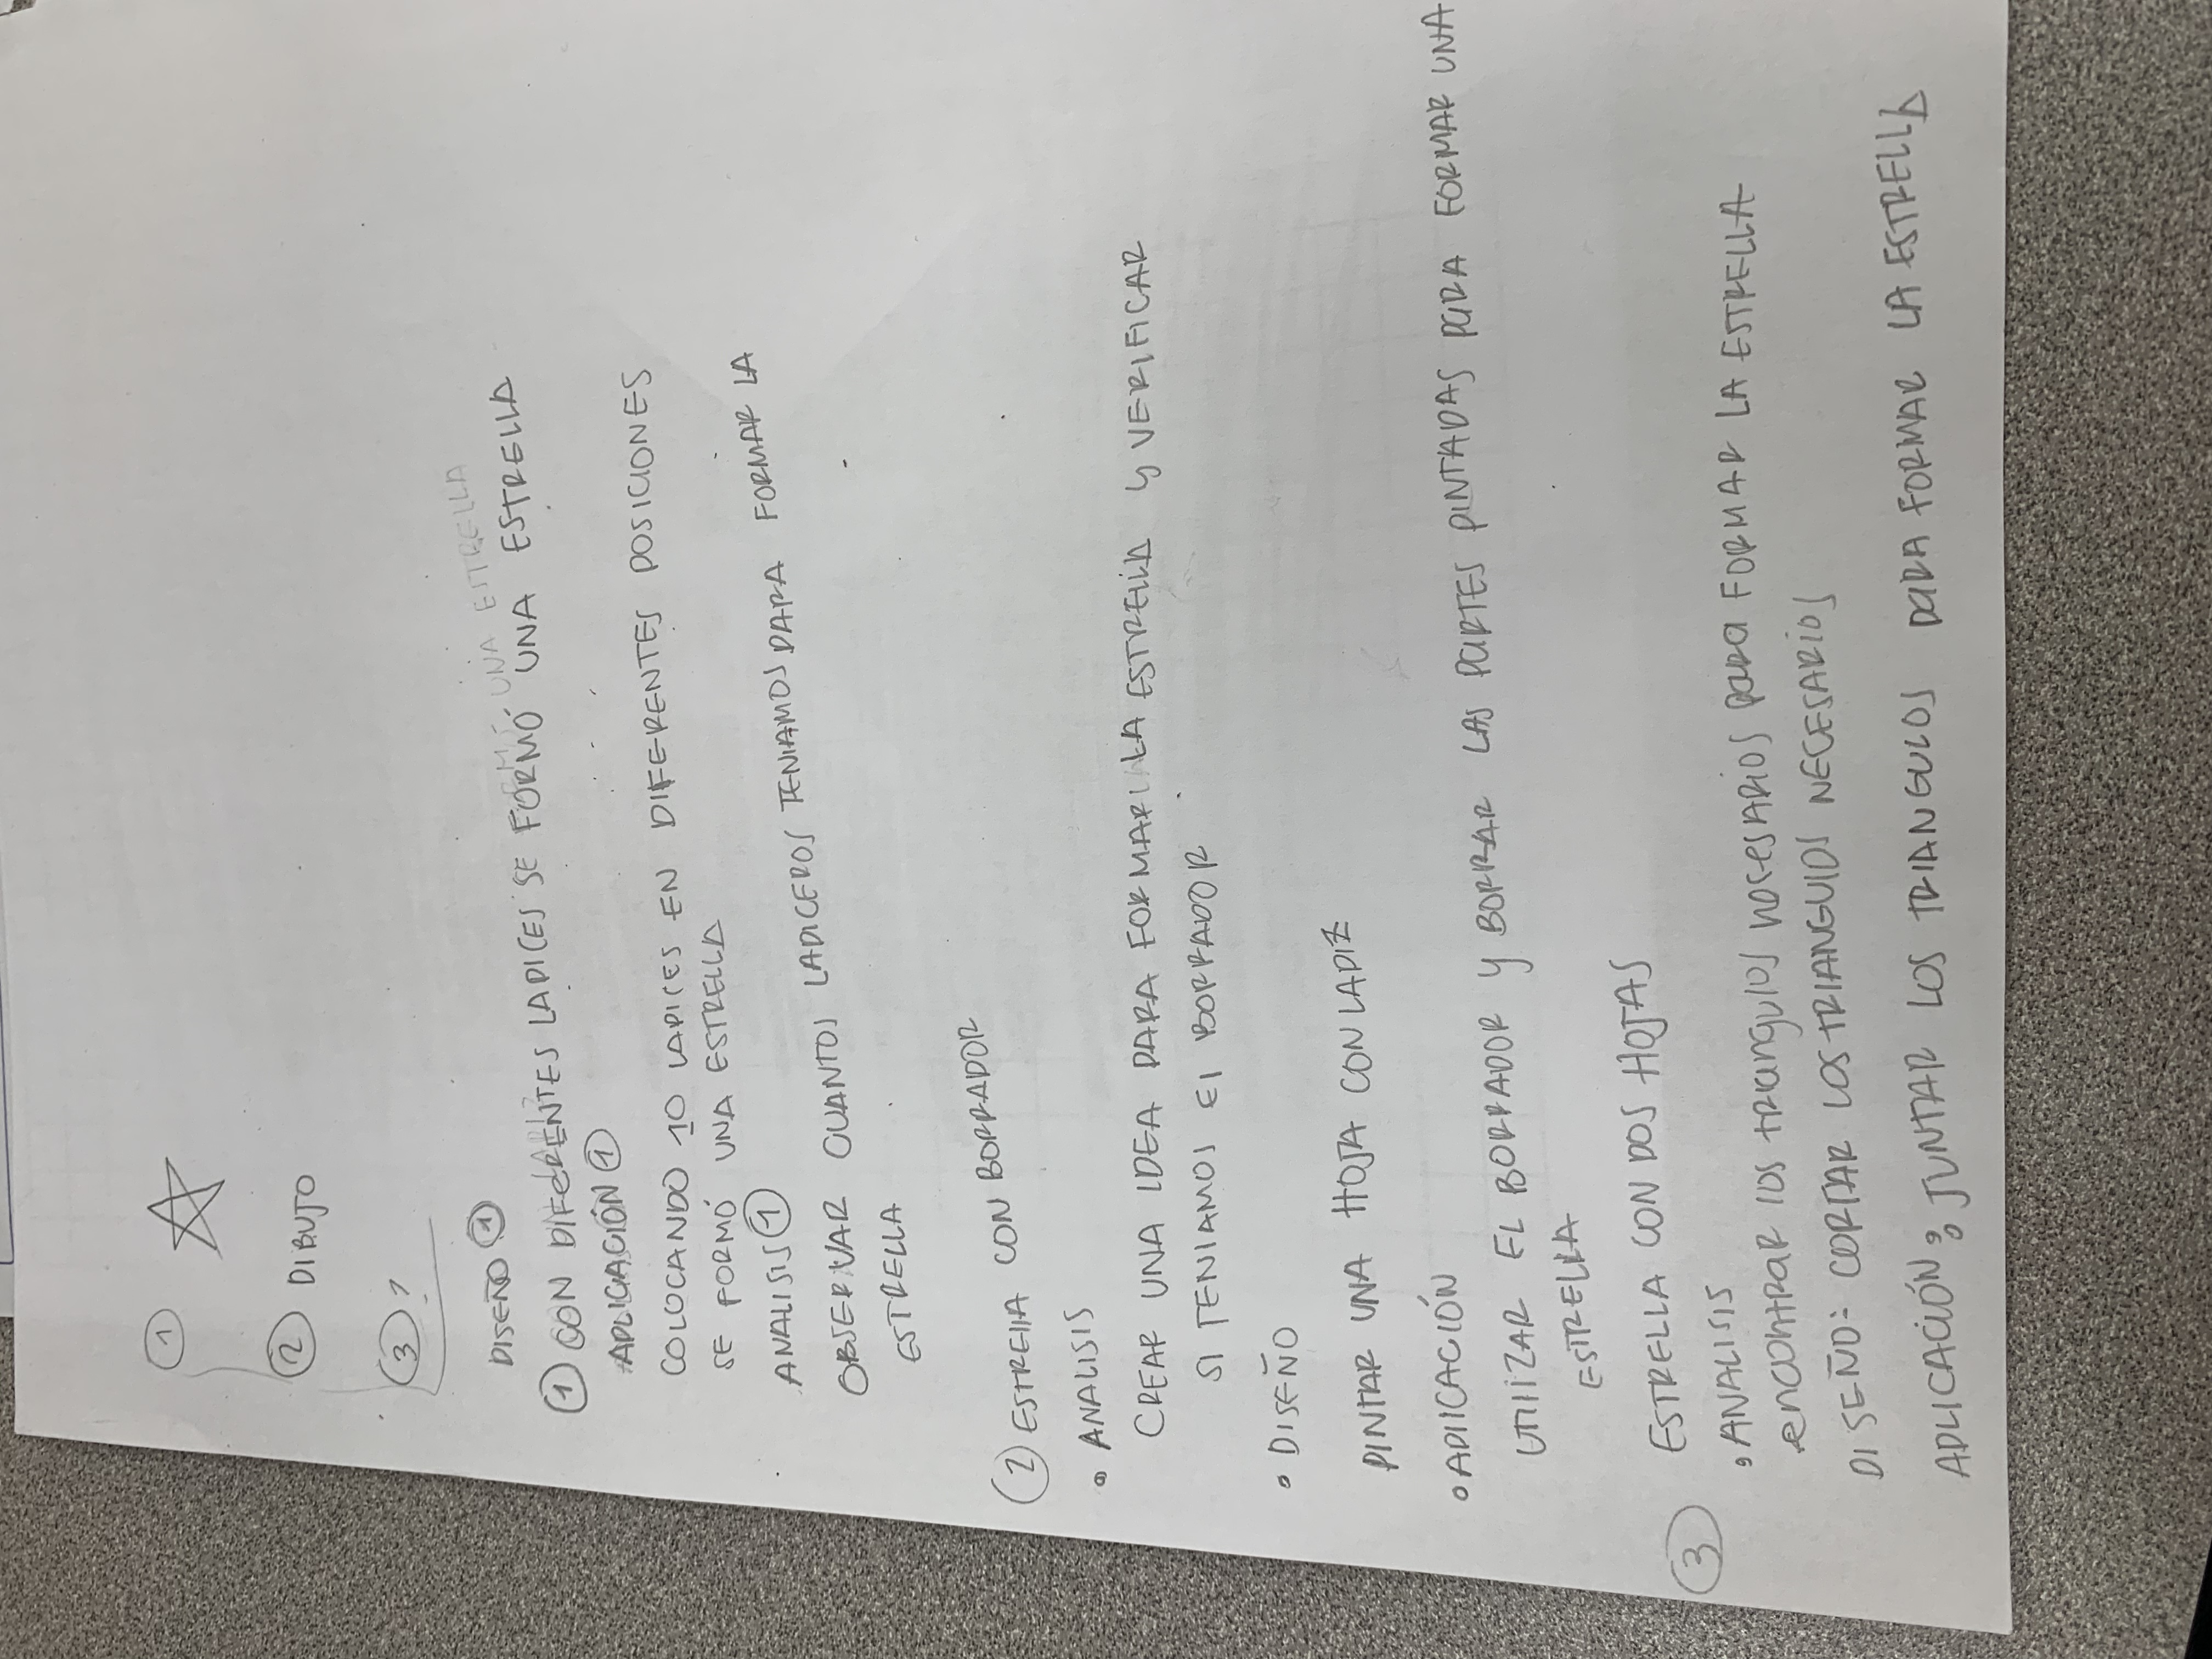 1
2 DIBUJO
3 ?
DISEÑO 1
1 CON DIFERENTES LAPICES SE FORMÓ UNA ESTRELLA
APLICACIÓN 1
COLOCANDO 10 LAPICES EN DIFERENTES POSICIONES
SE FORMÓ UNA ESTRELLA
ANALISIS 1
OBSERVAR CUANTOS LAPICEROS TENIAMOS PARA FORMAR LA
ESTRELLA
2 ESTRELLA CON BORRADOR
• ANALISIS
CREAR UNA IDEA PARA FORMAR LA ESTRELLA Y VERIFICAR
SI TENIAMOS El BORRADOR
• DISEÑO
PINTAR UNA HOJA CON LAPIZ
• APlICACIÓN
UTIlIZAR EL BORRADOR Y BORRAR LAS PARTES PINTADAS PARA FORMAR UNA
ESTRELLA
3 ESTRELLA CON DOS HOJAS
• ANALISIS
encontrar los triangulos necesARIOS para FORMAR LA ESTRELLA
DISEÑO: CORTAR LOS TRIANGUlOS NECESARIOS
APLICACIÓN: JUNTAR LOS TRIANGULOS PARA FORMAR LA ESTRELLA